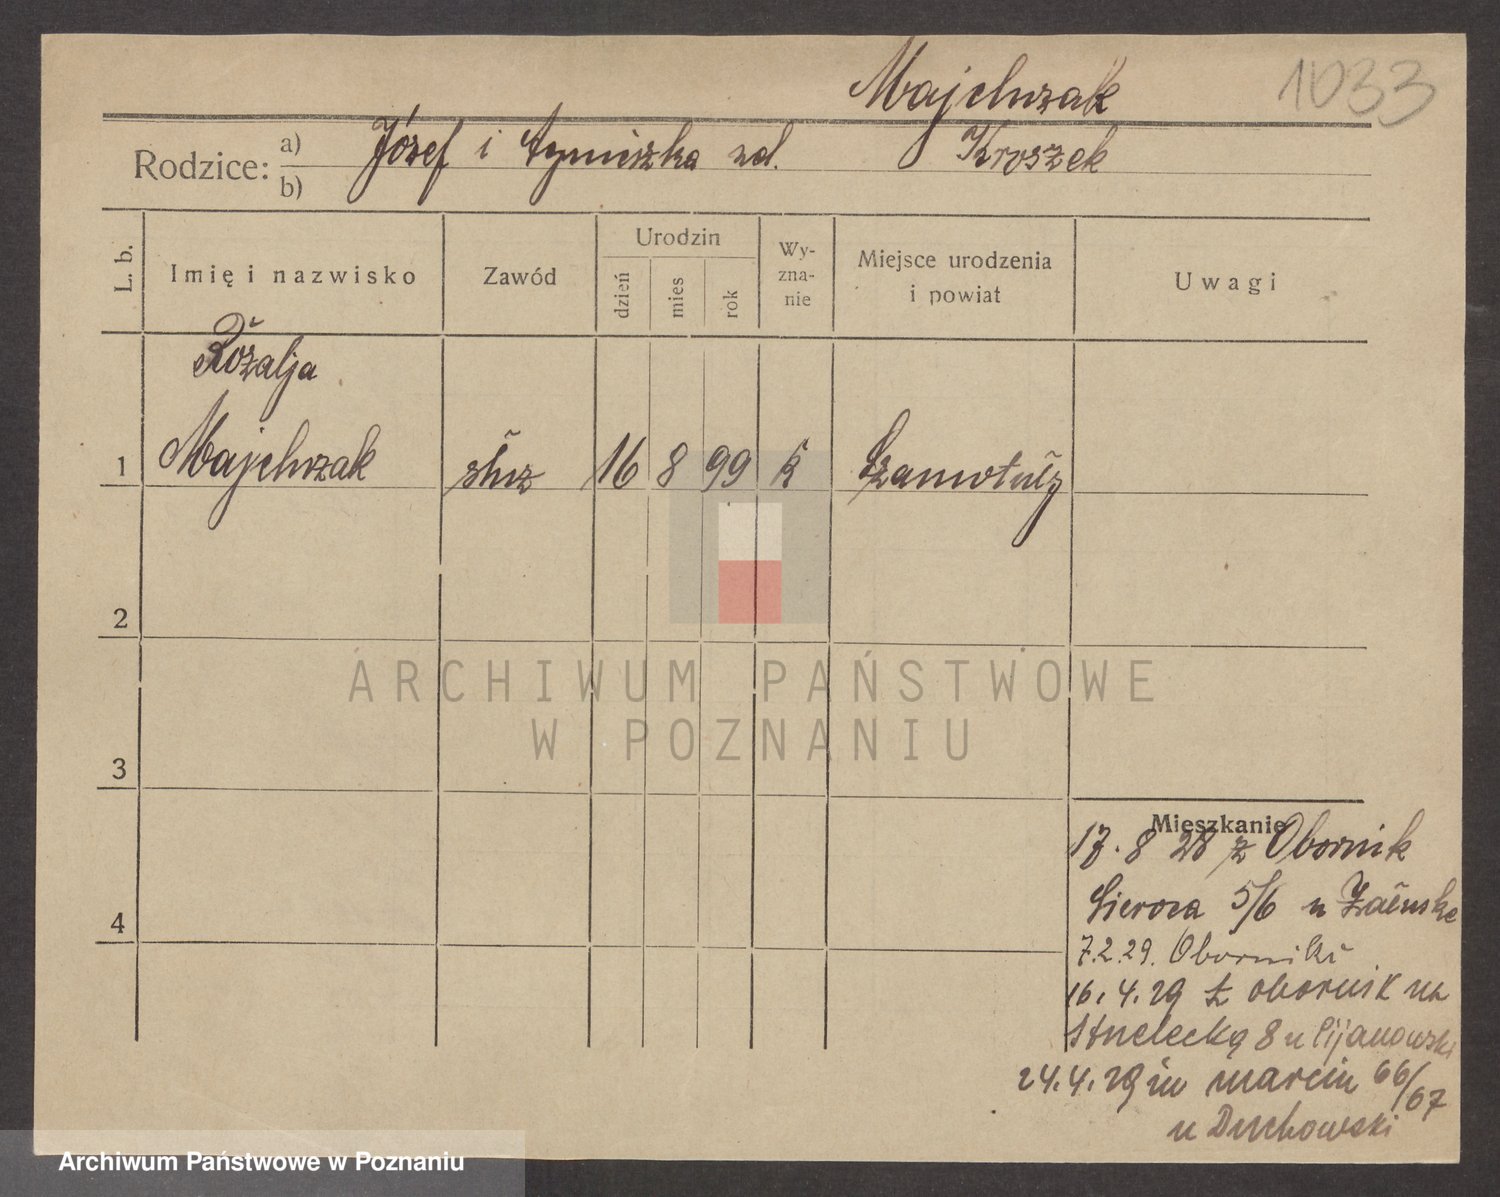 Majchrzak 1033
Rodzice: a) b) Józef i Agnieszka zd. Kroszek
L. b. Imię i nazwisko Zawód Urodzin dzień mies rok Wy-zna-nie Miejsce urodzenia i powiat Uwagi
Rozalja
1 Majchrzak służ 16 8 99 k Szamotuły
2
ARCHIWUM PAŃSTWOWE
W POZNANIU
3
Mieszkanie
17. 8 28 z Obornik
4 Sieroca 5/6 u
7.2.29. Oborniki
16. 4. 29 z obornik na
Strzelecką 8 u Pijanowski
24.4.29 św marcin 66/67
u Duchowski
Archiwum Państwowe w Poznaniu